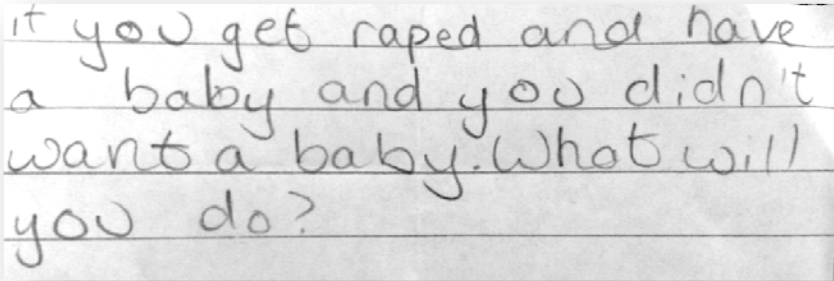 if you get raped and have
a baby and you didn't
want a baby. What will
you do?